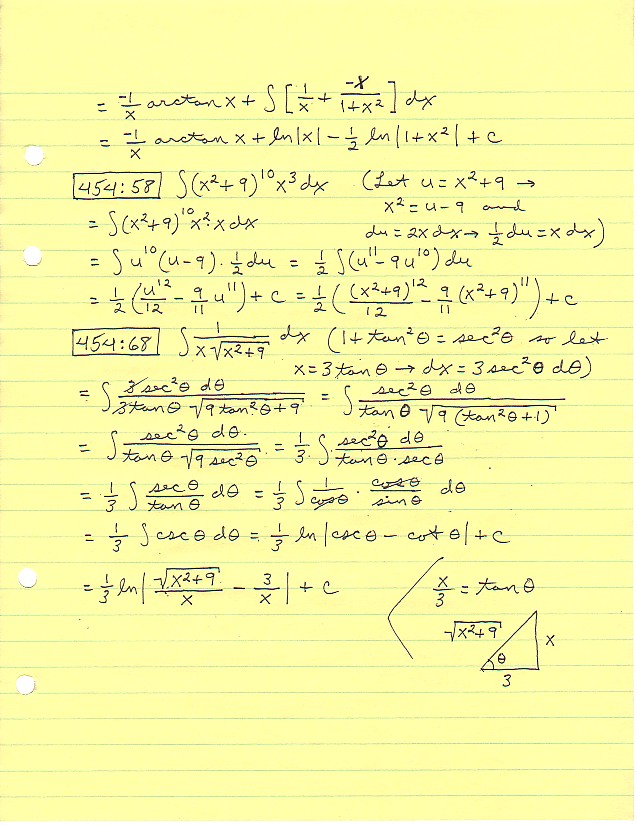 = -1/x arctan x + ∫ [ 1/x + -x/(1+x²) ] dx
= -1/x arctan x + ln|x| - 1/2 ln|1+x²| + C
454:58 ∫(x²+9)¹⁰x³dx (Let u = x²+9 →
x² = u-9 and
= ∫(x²+9)¹⁰x²·x dx du = 2x dx → 1/2 du = x dx)
= ∫ u¹⁰(u-9)·1/2 du = 1/2 ∫(u¹¹-9u¹⁰) du
= 1/2 (u¹²/12 - 9/11 u¹¹) + C = 1/2 ((x²+9)¹²/12 - 9/11 (x²+9)¹¹) + C
454:68 ∫ 1/(x√(x²+9)) dx (1+tan²θ = sec²θ so let
x = 3tanθ → dx = 3sec²θ dθ)
= ∫ 3sec²θ dθ/(3tanθ √(9tan²θ+9)) = ∫ sec²θ dθ/(tanθ √(9(tan²θ+1)))
= ∫ sec²θ dθ/(tanθ √(9sec²θ)) = 1/3 ∫ sec²θ dθ/(tanθ·secθ)
= 1/3 ∫ secθ/tanθ dθ = 1/3 ∫ 1/cosθ · cosθ/sinθ dθ
= 1/3 ∫ cscθ dθ = 1/3 ln|cscθ - cotθ| + C
= 1/3 ln| √(x²+9)/x - 3/x | + C x/3 = tanθ
√(x²+9) x
θ
3